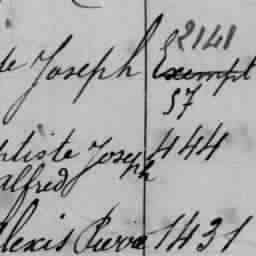 82141
de Joseph Exempt
57
ptiste Joseph 444
alfred
Alexis Pierre 1431